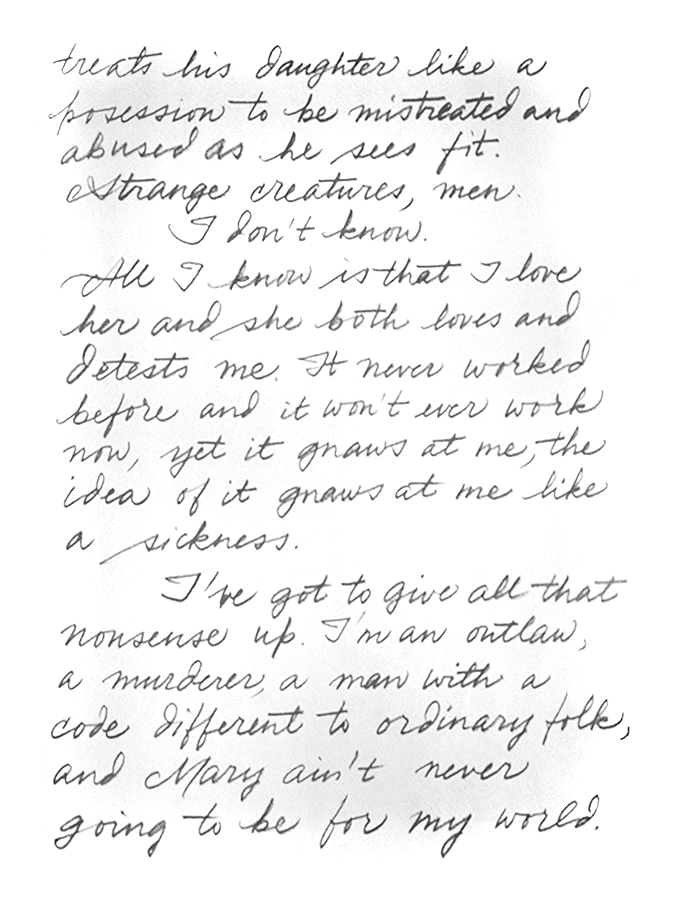 treats his daughter like a
posession to be mistreated and
abused as he sees fit.
Strange creatures, men.
I don't know.
All I know is that I love
her and she both loves and
detests me. It never worked
before and it won't ever work
now, yet it gnaws at me, the
idea of it gnaws at me like
a sickness.
I've got to give all that
nonsense up. I'm an outlaw,
a murderer, a man with a
code different to ordinary folk,
and Mary ain't never
going to be for my world.